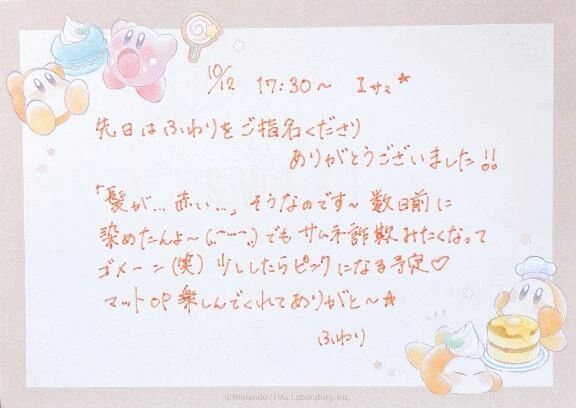 10/12 17:30～ Iサマ☆
先日はふわりをご指名くださり
ありがとうございました!!
「髪が…赤い…」そうなのです～数日前に
染めたんよ～(¨⌒⌒¨)でもサムネ詐欺みたくなって
ゴメーン(笑)少ししたらピンクになる予定♡
マットOP楽しんでくれてありがと～☆
ふわり
©Nintendo / HAL Laboratory, Inc.